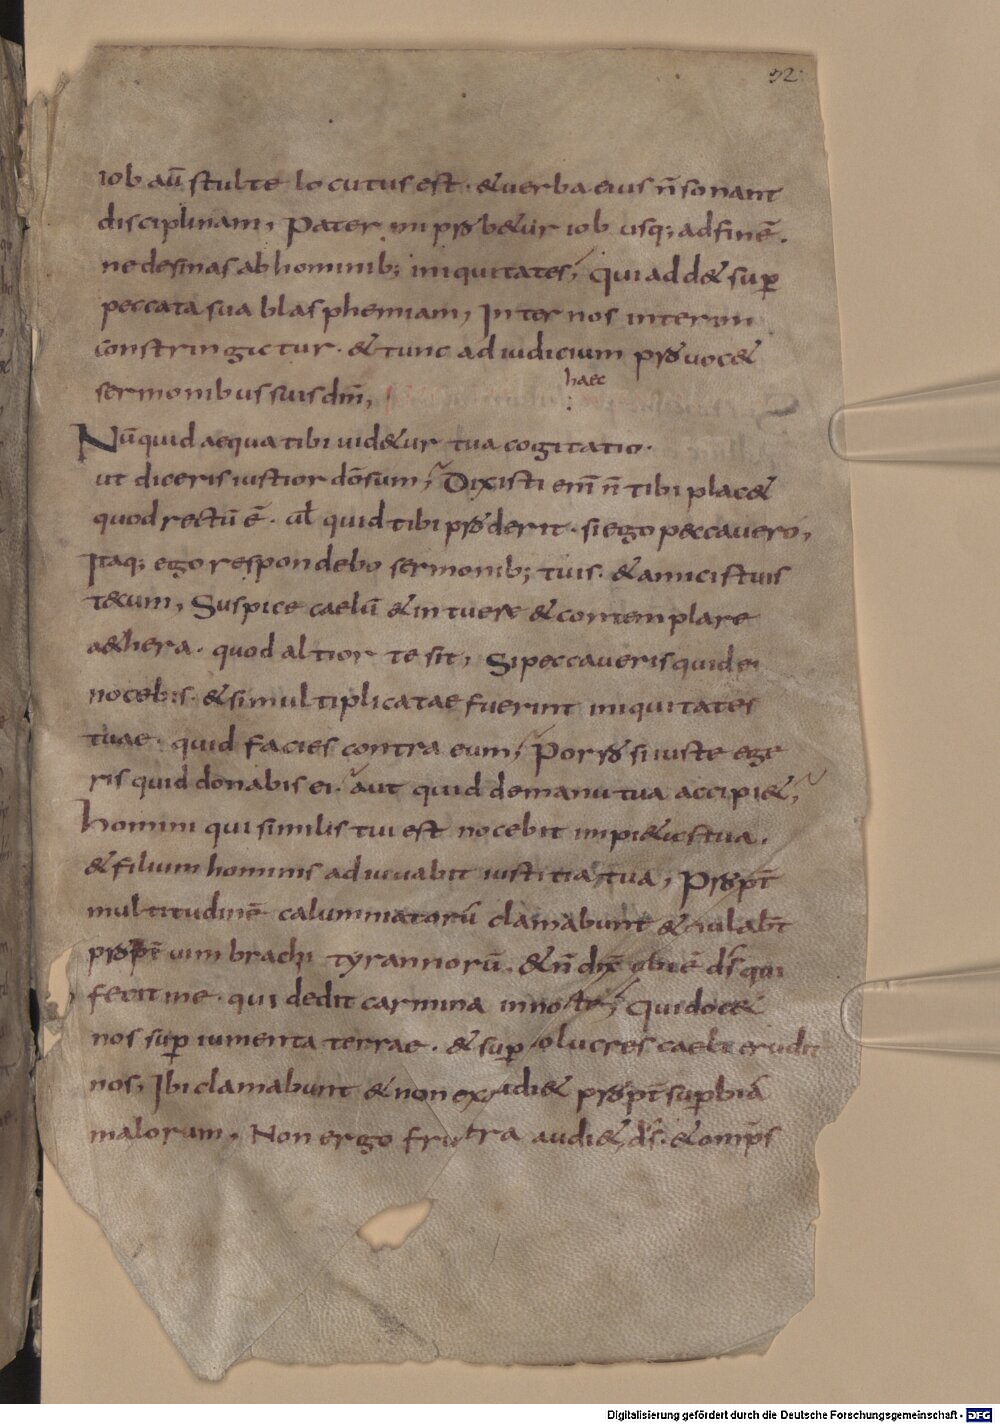 32
iob aū stulte locutus est · & verba eius n̄ sonant
disciplinam, Pater mi prob&ur iob usq; ad finē.
ne desinas ab hominib; iniquitates, Qui add& sup
peccata sua blasphemiam, Inter nos interim
constringitur · & tunc ad iudicium prouoc&
sermonibus suis dm̄,
haec
Nūquid aequa tibi uid&ur tua cogitatio.
ut diceris iustior dōsum, Dixisti enī n̄ tibi plac&
quod rectū ē. ul quid tibi proderit · si ego peccauero,
Itaq; ego respondebo sermonib; tuis. & amicis tuis
tecum, Suspice caelū & intuere & contemplare
a&hera · quod altior te sit, Si peccaueris quid ei
nocebis · & si multiplicatae fuerint iniquitates
tuae · quid facies contra eum, Porro si iuste ege
ris quid donabis ei. aut quid de manu tua accipi&,
Homini qui similis tui est nocebit impi&as tua.
& filium hominis adiuuabit iustitia tua, Propt
multitudinē calumniatorū clamabunt & eiulabt
propt uim brachi tyrannorū. & n̄ dix ubi ē ds qui
fecit me · qui dedit carmina in nocte, Qui doc&
nos sup iumenta terrae. & sup uolucres caeli erudit
nos, Ibi clamabunt & non exaudi& propt supbiā
malorum, Non ergo frustra audi& ds. & omps
Digitalisierung gefördert durch die Deutsche Forschungsgemeinschaft - DFG